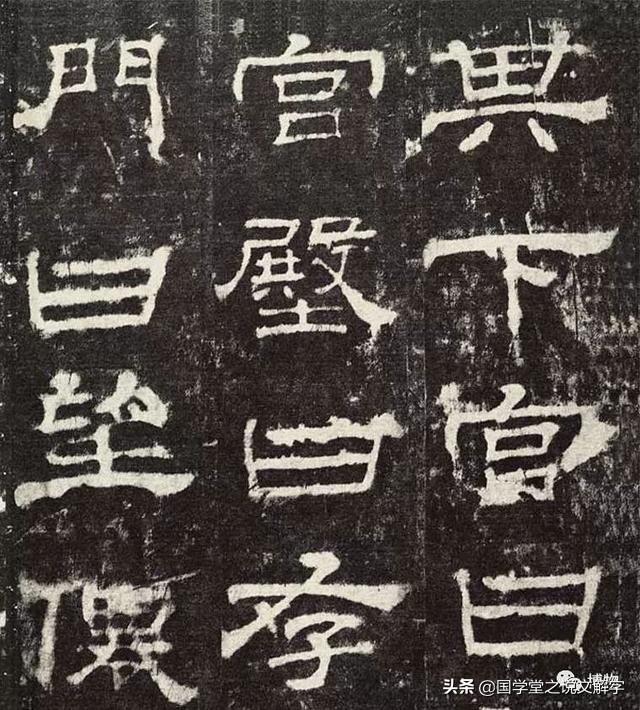 其下宮曰
宮壂曰存
門曰望僊
博物
头条 @国学堂之说文解字